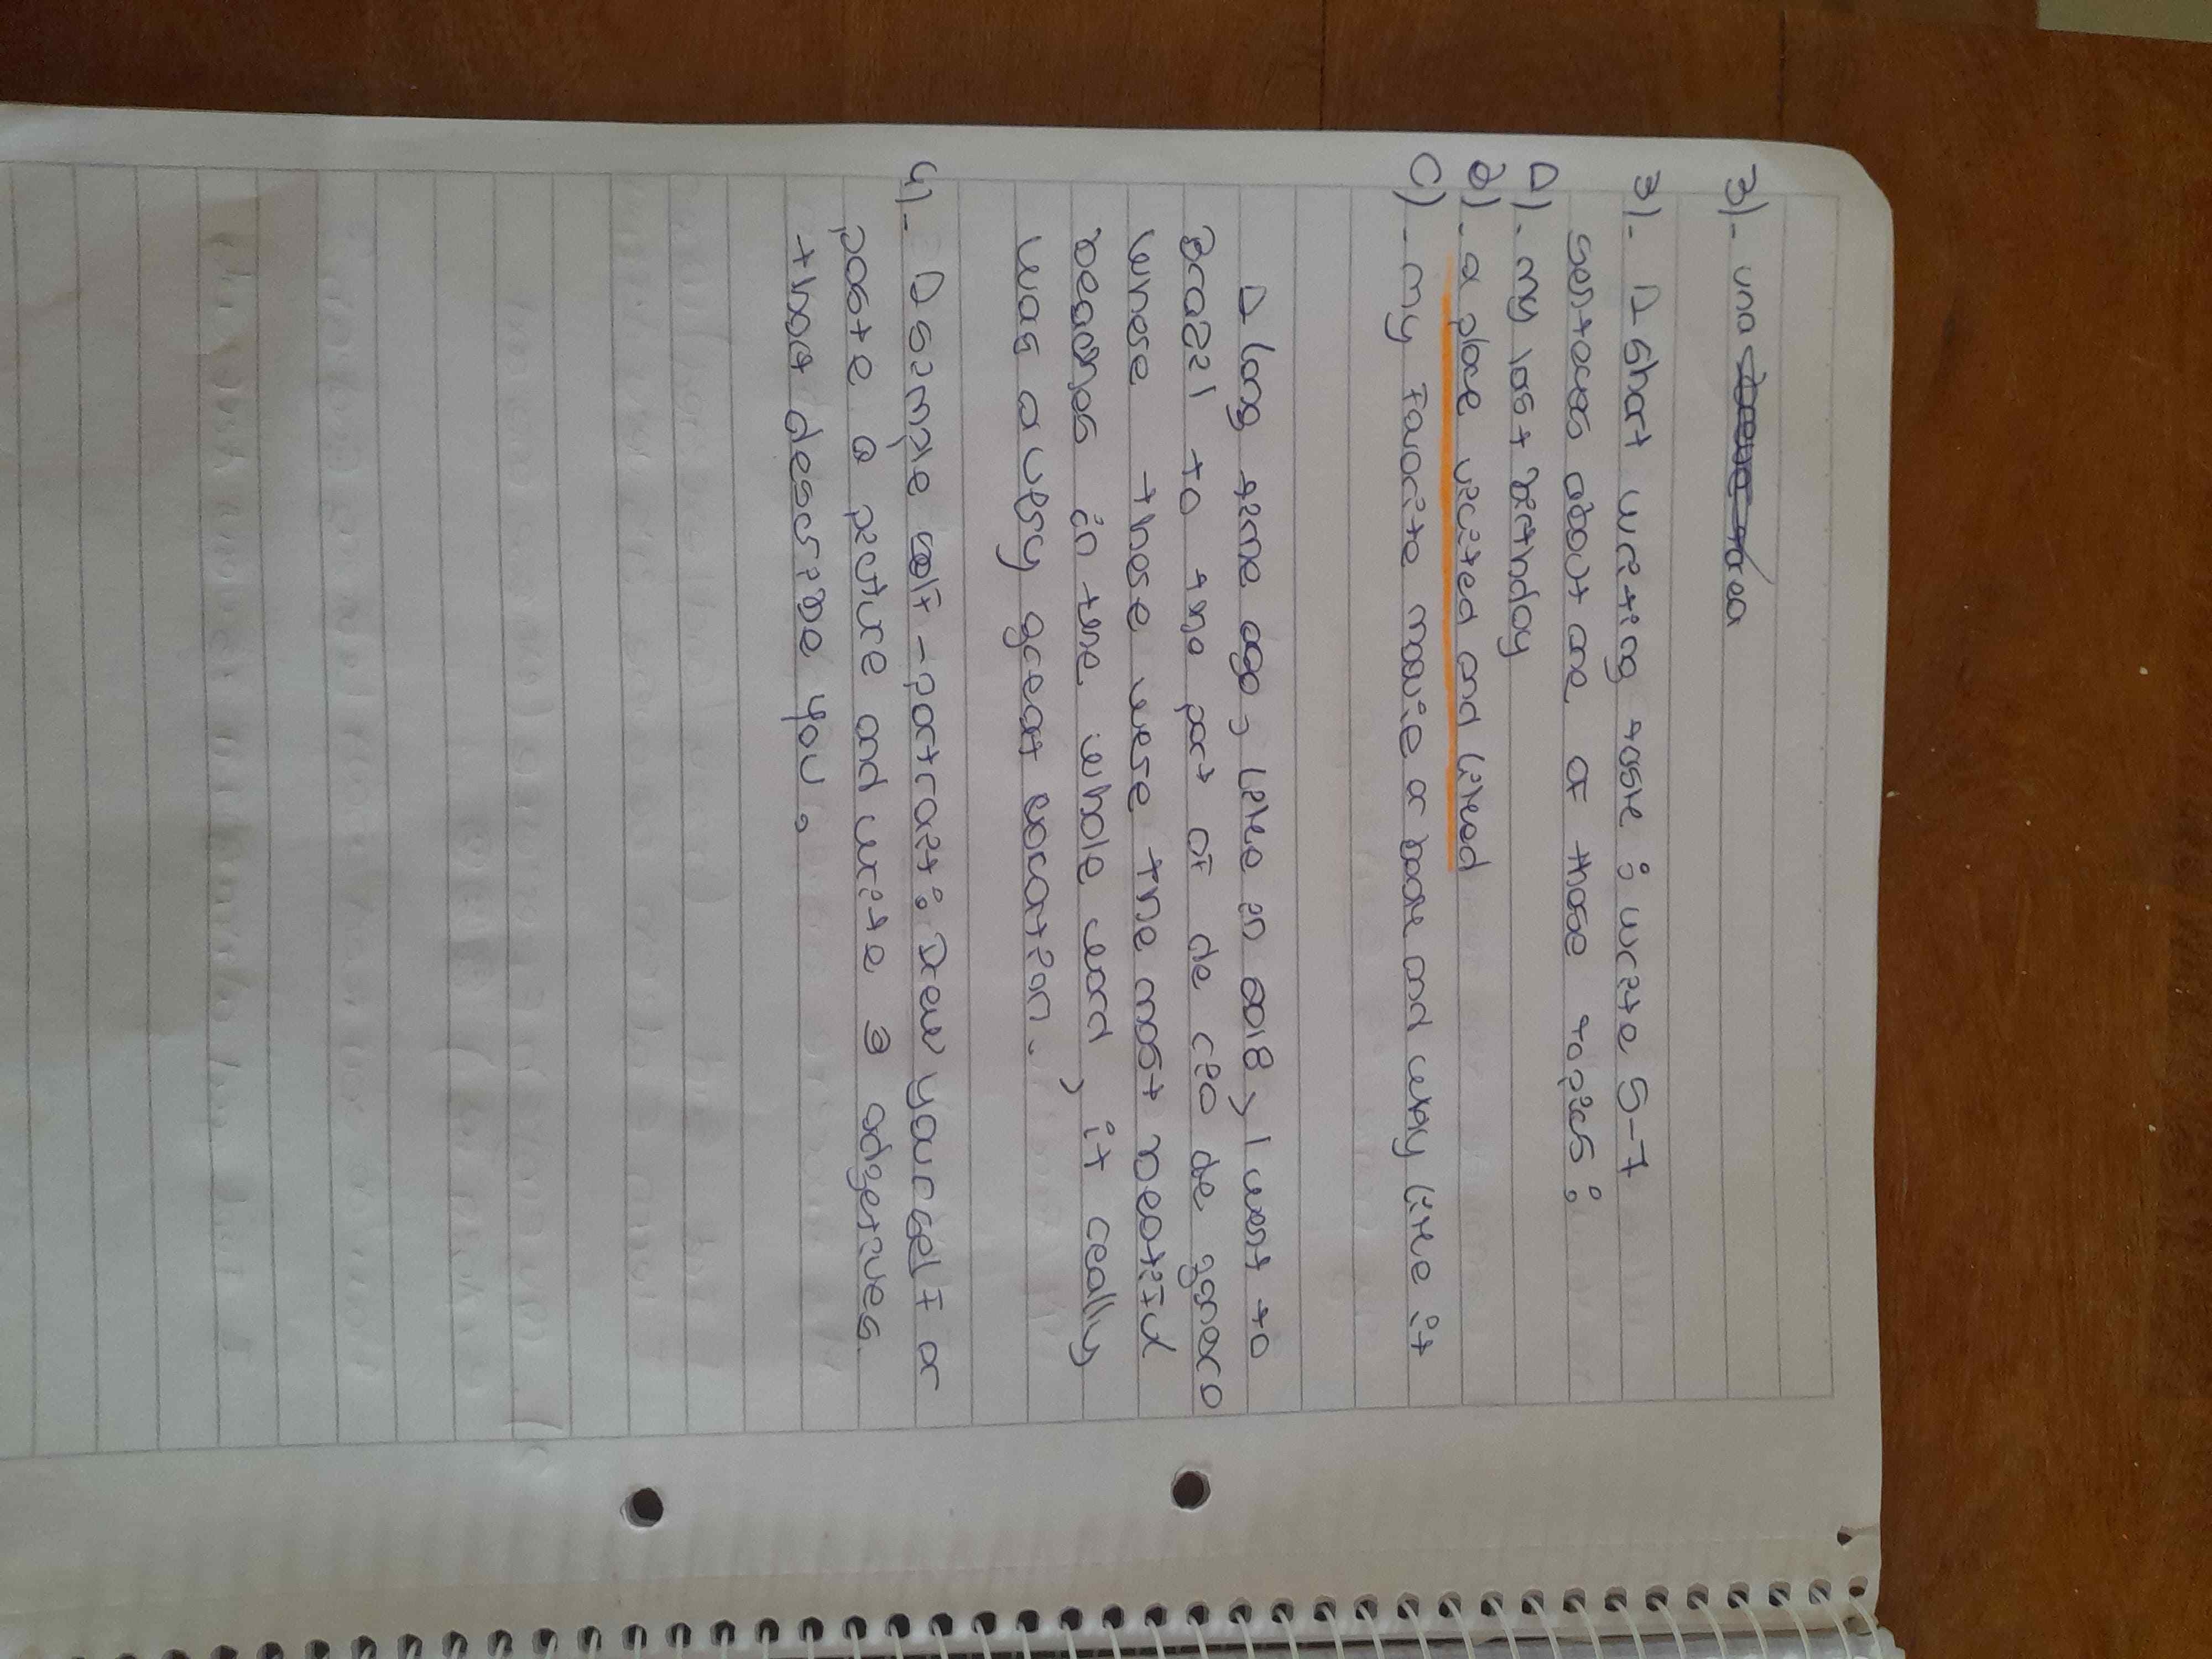 3).- una
3).- A Short writing task: write 5-7
sentences about one of those topics:
A).- my last birthday
b).- a place visited and liked
c).- my favorite movie or book and why like it
A long time ago, like in 2018, I went to
Brazil to the part of de rio de janero
where those were the most beatiful
beaches in the whole word, it really
was a very great vocation.
4).- A simple self-portrait: Drew yourself or
paste a picture and write 3 adjetives
that describe you.